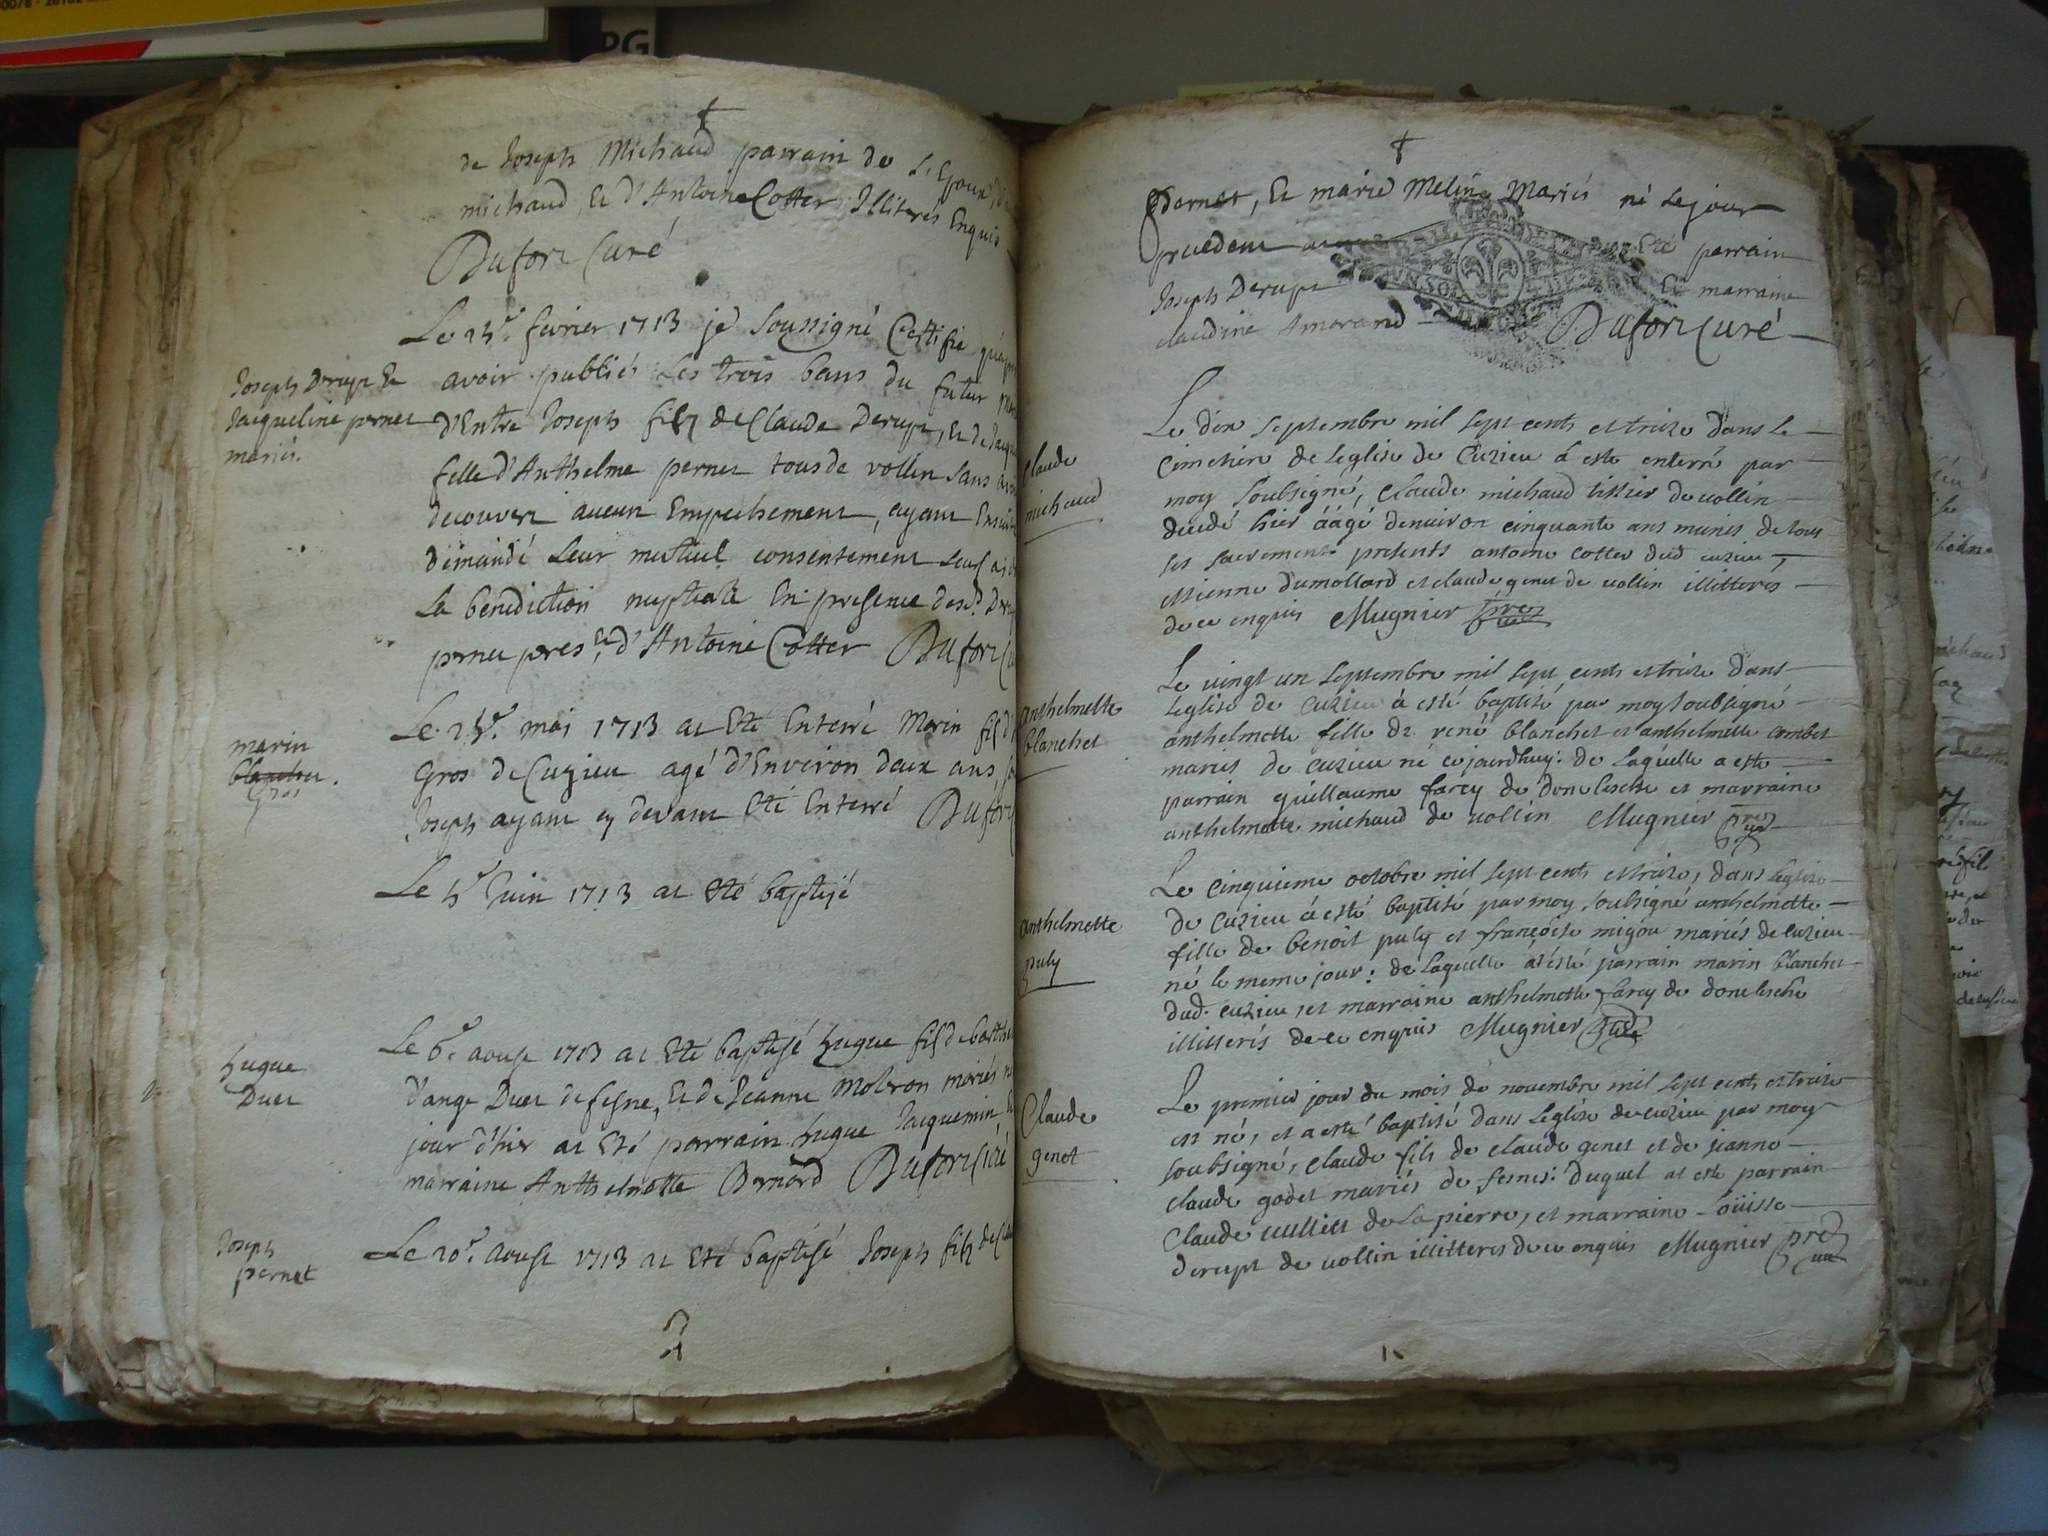 de Joseph Michaud parrain de
michaud, Et d'Antoine Cotter Illiterés Enquis
Dufort Curé
Le 23e. fevrier 1713 je Soussigné Certifie
Joseph Derupt Et
Jacqueline pernet
mariés.
avoir publiés Les trois bans du futur
d'Entre Joseph filz de Claude Derupt, Et de
fille d'Anthelme pernet tous de vollin Sans
decouvert aucun Empechement, ayant Ensuite
demandé Leur mutuel consentement Leur ai
La benediction nuptiale En presence desd.
pernet peres Et d'Antoine Cotter Dufort
marin
blanchet.
Gros
Le mai 1713 at Eté Enterré Marin
Gros de Cuzieu agé d'Environ deux ans,
Joseph ayant cy devant Eté Enterré Dufort
Le Juin 1713 at Eté baptisé
hugue
Duet
Le 6e aoust 1713 at Eté baptisé hugue fils de
d'ange Duet de fesne, Et de Jeanne Molron mariés
jour d'hier at Eté parrain hugue Jacquemin
marraine Anthelmette Bernard Dufort Curé
Joseph
pernet
Le 20e. Aoust 1713 at Eté baptisé Joseph filz de
Pernet, Et marie Meling Mariés né Le jour
precedent at Eté parrain
Joseph Derupt Et marraine
claudine Amorand Dufort Curé
claude
michaud
Le dix septembre mil sept cents et treize dans Le
Cimetiere de Leglise de Cuzieu á esté enterré par
moy Soubsigné, Claude michaud tissier de vollin
decedé hier áágé denviron cinquante ans munis de tous
ses sacrements presents antoine cotter dud cuzieu,
estienne dumollard et claude genet de vollin illitteres
de ce enquis Mugnier
anthelmette
blanchet
Le vingt un septembre mil sept cents et treize dans
Leglise de cuzieu à esté baptisé par moy soubsigné
anthelmette fille de rené blanchet et anthelmette combet
mariés de cuzieu né cejourdhuy: de Laquelle a esté
parrain guillaume farcy de donelesche et marraine
anthelmette michaud de vollin Mugnier
anthelmette
puly
Le cinquieme octobre mil sept cents et treize, dans Leglise
de cuzieu á esté baptisé par moy soubsigné anthelmette
fille de benoit puly et françoise migon mariés de cuzieu
né le meme jour: de Laquelle at esté parrain marin blanchet
dud. cuzieu, et marraine anthelmette farcy de donelesche
illitterés de ce enquis Mugnier
Claude
genet
Le premier jour du mois de novembre mil sept cents et treize
est né, et a esté baptisé dans Leglise de cuzieu par moy
soubsigné, claude fils de claude genet et de jeanne
claude godet mariés de fesnes: duquel at esté parrain
Claude de la pierre, et marraine Loüisse
derupt de vollin illitteres de ce enquis Mugnier